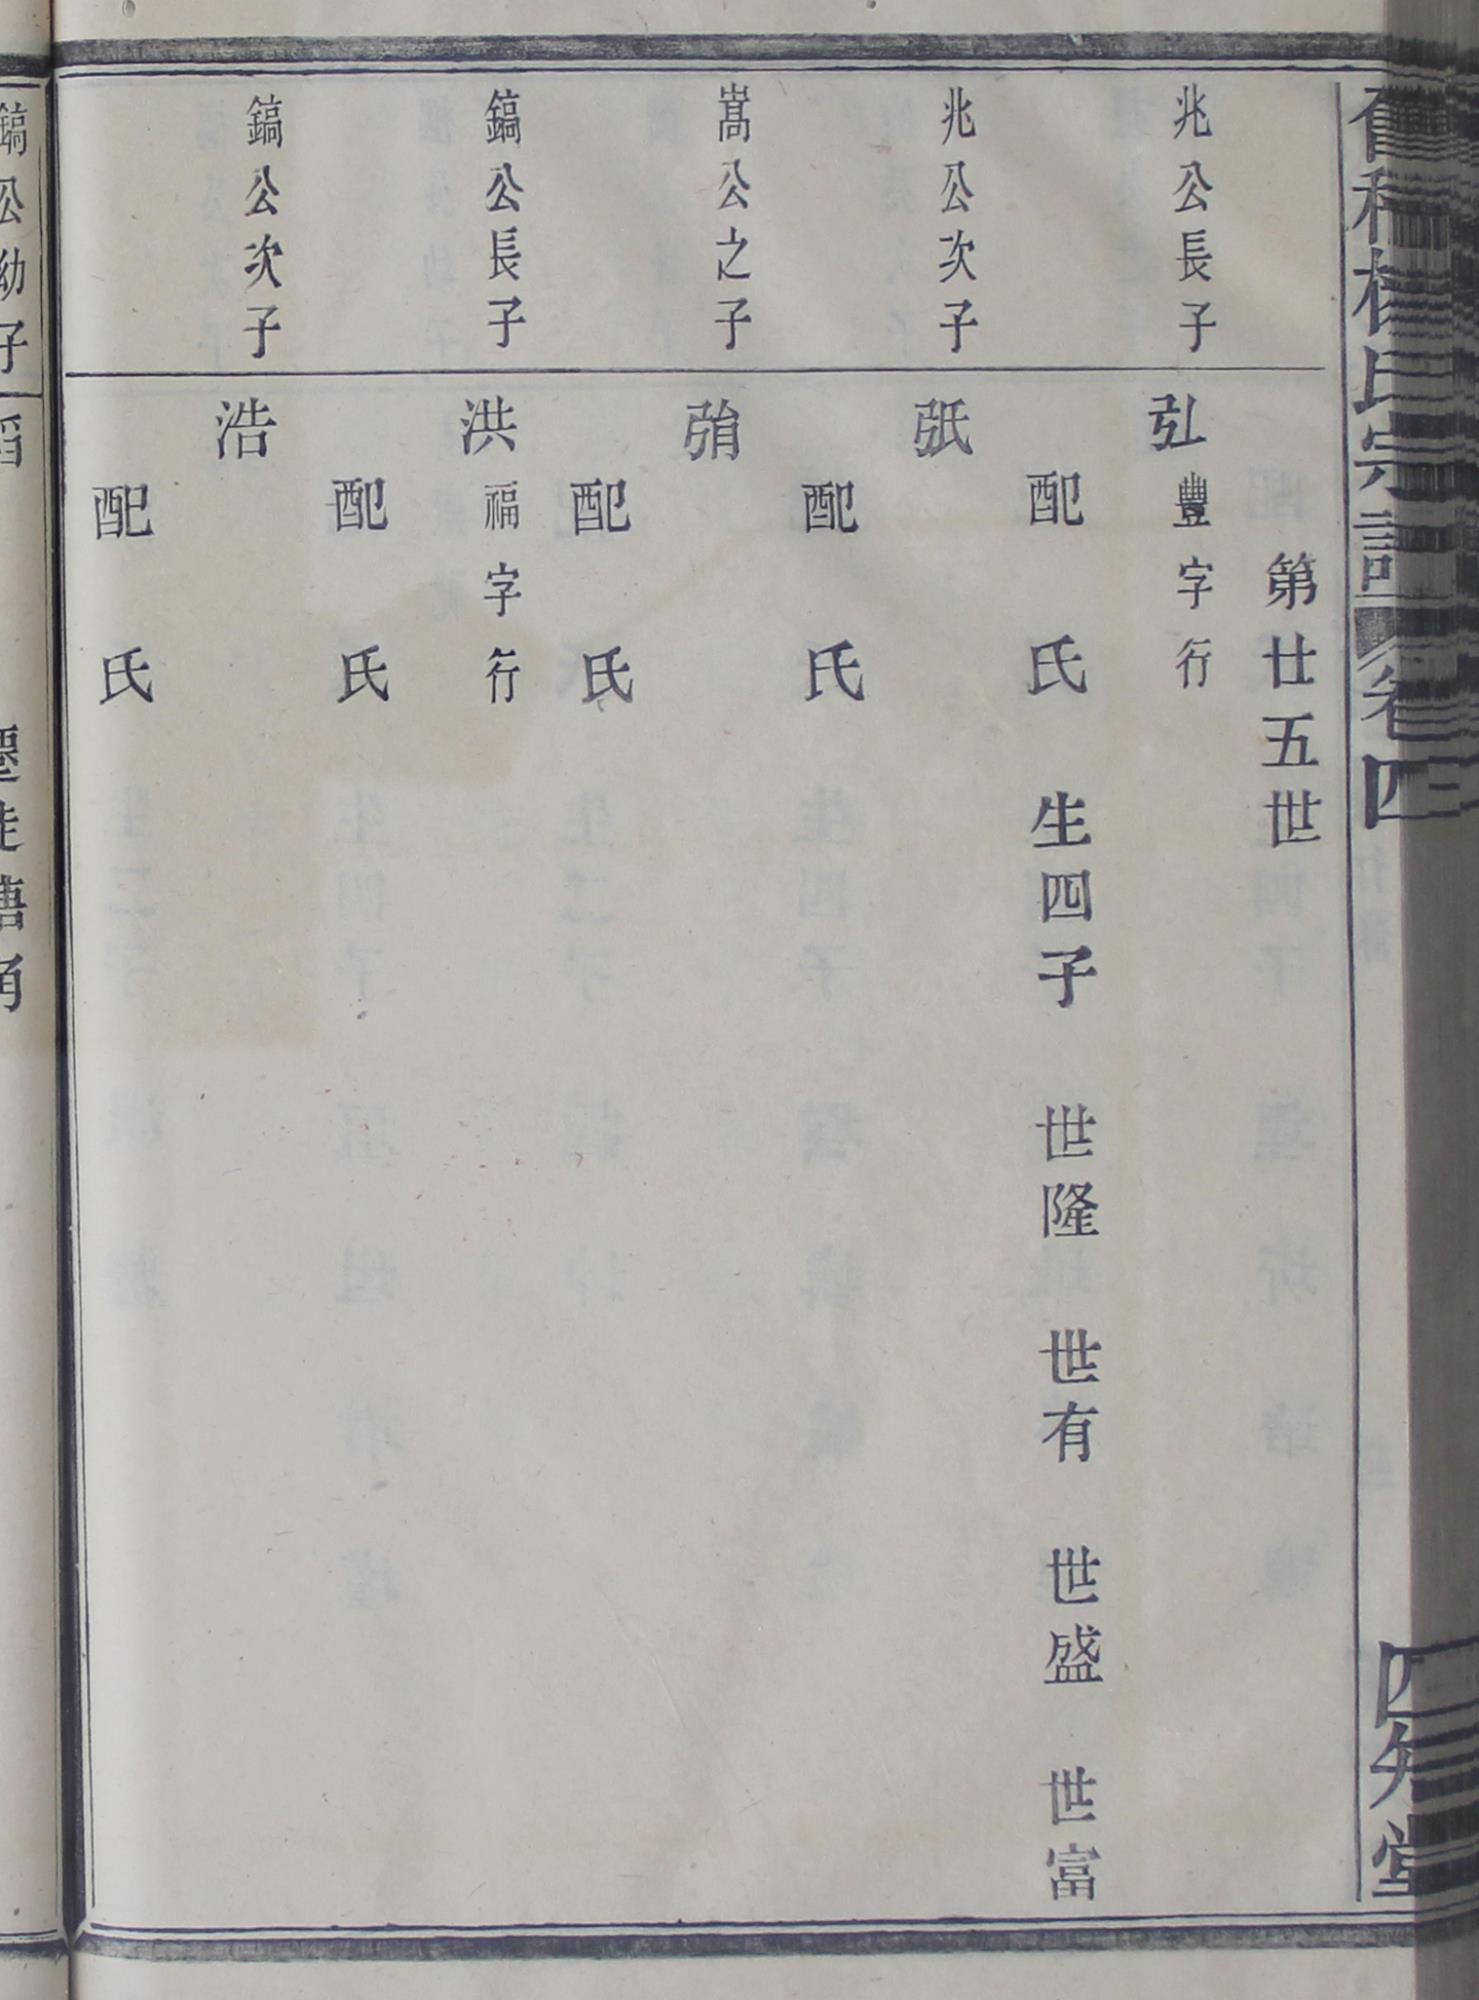 楊氏宗譜 卷四 四知堂
第廿五世
兆公長子 弘 豐字行
配 氏 生四子 世隆 世有 世盛 世富
兆公次子
配 氏
嵩公之子
配 氏
鎬公長子 洪 福字行
配 氏
鎬公次子 浩
配 氏
鎬公幼子